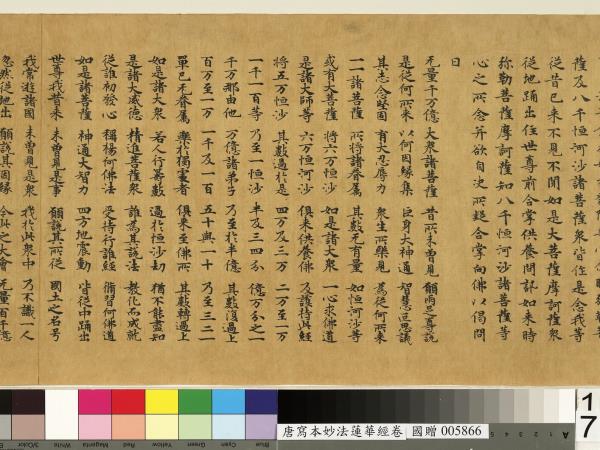 薩及八千恒河沙諸菩薩眾皆作是念我等
從昔已來不見不聞如是大菩薩摩訶薩眾
從地踊出住世尊前合掌供養問訊如來時
弥勒菩薩摩訶薩知八千恒河沙諸菩薩等
心之所念并欲自決所疑合掌向佛以偈問
曰
无量千万億 大眾諸菩薩 昔所未曾見 願兩足尊說
是從何所來 以何因緣集 巨身大神通 智慧叵思議
其志念堅固 有大忍辱力 眾生所樂見 為從何所來
一一諸菩薩 所將諸眷屬 其數无有量 如恒河沙等
或有大菩薩 將六万恒沙 如是諸大眾 一心求佛道
是諸大師等 六万恒河沙 俱來供養佛 及護持此經
將五万恒沙 其數過於是 四万及三万 二万至一万
一千一百等 乃至一恒沙 半及三四分 億万分之一
千万那由他 万億諸弟子 乃至於半億 其數復過上
百万至一万 一千及一百 五十與一十 乃至三二一
單已无眷屬 樂於獨處者 俱來至佛所 其數轉過上
如是諸大眾 若人行籌數 過於恒沙劫 猶不能盡知
是諸大威德 精進菩薩眾 誰為其說法 教化而成就
從誰初發心 稱揚何佛法 受持行誰經 修習何佛道
如是諸菩薩 神通大智力 四方地震動 皆從中踊出
世尊我昔來 未曾見是事 願說其所從 國土之名号
我常遊諸國 未曾見是眾 我於此眾中 乃不識一人
忽然從地出 願說其因緣 今此之大會 无量百千億
3/Color White Magenta Red Yellow Green Cyan Blue
唐寫本妙法蓮華經卷 國贈 005866
A 1
17